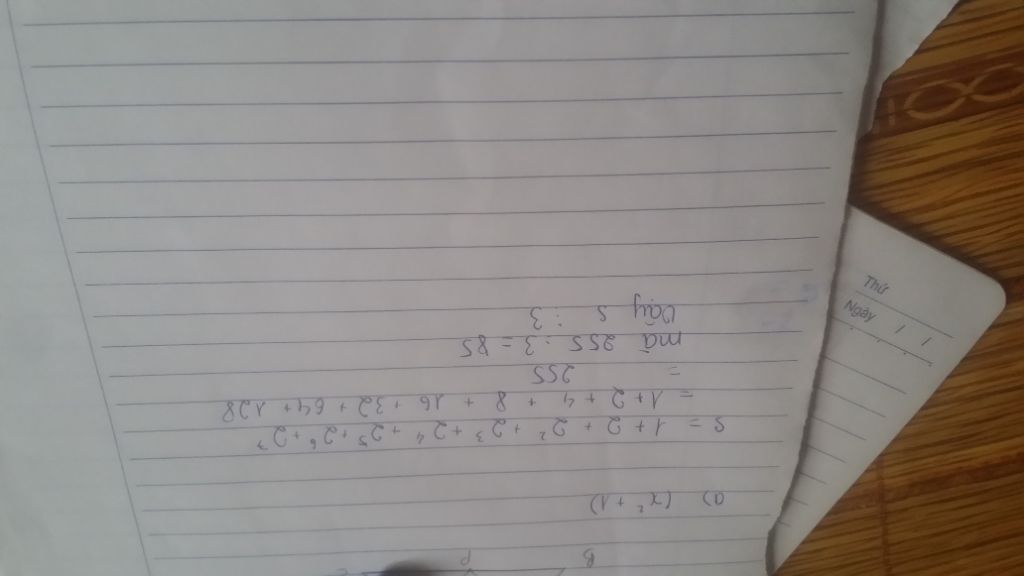 B P C
a) (x² + 1)
S = 1 + 2 + 2² + 2³ + 2⁴ + 2⁵ + 2⁶ + 2⁷
= 1 + 2 + 4 + 8 + 16 + 32 + 64 + 128
= 255
mà 255 : 3 = 85
Vậy S ⋮ 3
Thứ
Ngày / /